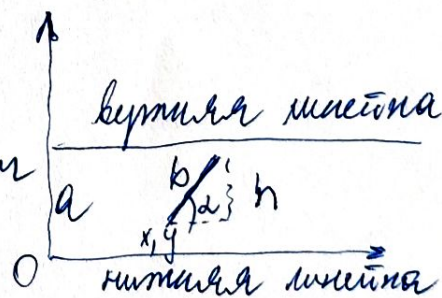 верхняя линейка
и
a
b
α
h
x, y
O
нижняя линейка